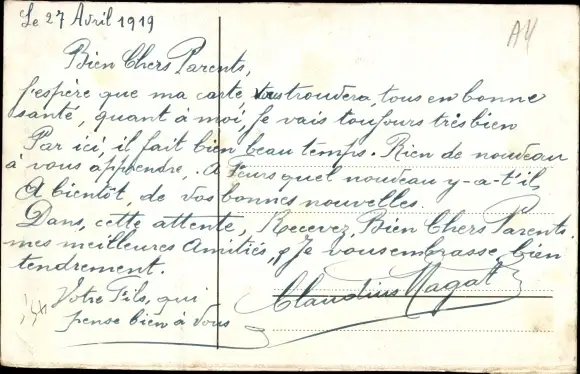 Le 27 Avril 1919
A4
Bien Chers Parents,
J'espère que ma carte, vous trouvera, tous en bonne
santé, quant à moi, Je vais toujours très bien
Par ici, il fait bien beau temps. Rien de nouveau
à vous apprendre, . A Feurs quel nouveau y-a-t'il,
A bientôt, de vos bonnes nouvelles.
Dans, cette attente, Recevez, Bien Chers Parents.
mes meilleures Amitiés, Je vous embrasse, bien
tendrement.
Votre Fils, qui
pense bien à vous
Claudius Magat